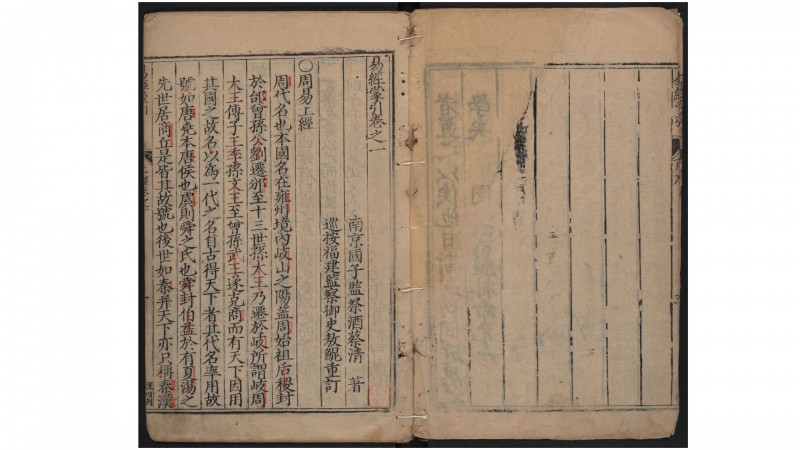 易經蒙引卷之一
南京國子監祭酒蔡清著
巡按福建監察御史敖鯤重訂
○周易上經
周代名也本國名在雍州境內岐山之陽蓋周始祖后稷封
於邰曾孫公劉遷邠至十三世孫太王乃遷於岐所謂岐周
太王傳子王季孫文王至曾孫武王遂克商而有天下因用
其國之故名以為一代之名自古得天下者其代名率用故
號如唐堯本唐侯也虞則舜之氏也舜封伯益於有夏湯之
先世居商丘是皆其故號也後世如秦并天下亦只稱秦漢